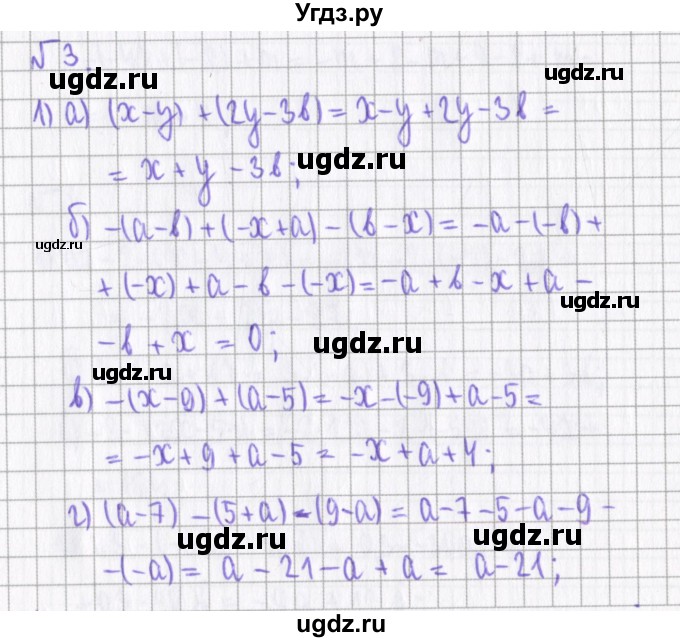 Угдз.ру
√3.
ugdz.ru ugdz.ru
1) а) (x-y) + (2y-3в) = x-y+2y-3в =
= x+y-3в;
ugdz.ru
б) -(a-в)+(-x+a)-(в-x) = -a-(-в)+
ugdz.ru
+(-x)+a-в-(-x)=-a+в-x+a-
ugdz.ru
-в+x = 0;
ugdz.ru
ugdz.ru
в) -(x-9)+(a-5)=-x-(-9)+a-5=
= -x+9+a-5= -x+a+4;
г) (a-7)-(5+a)-(9-a)= a-7-5-a-9-
ugdz.ru ugdz.ru
-(-a)= a-21-a+a= a-21;
ugdz.ru